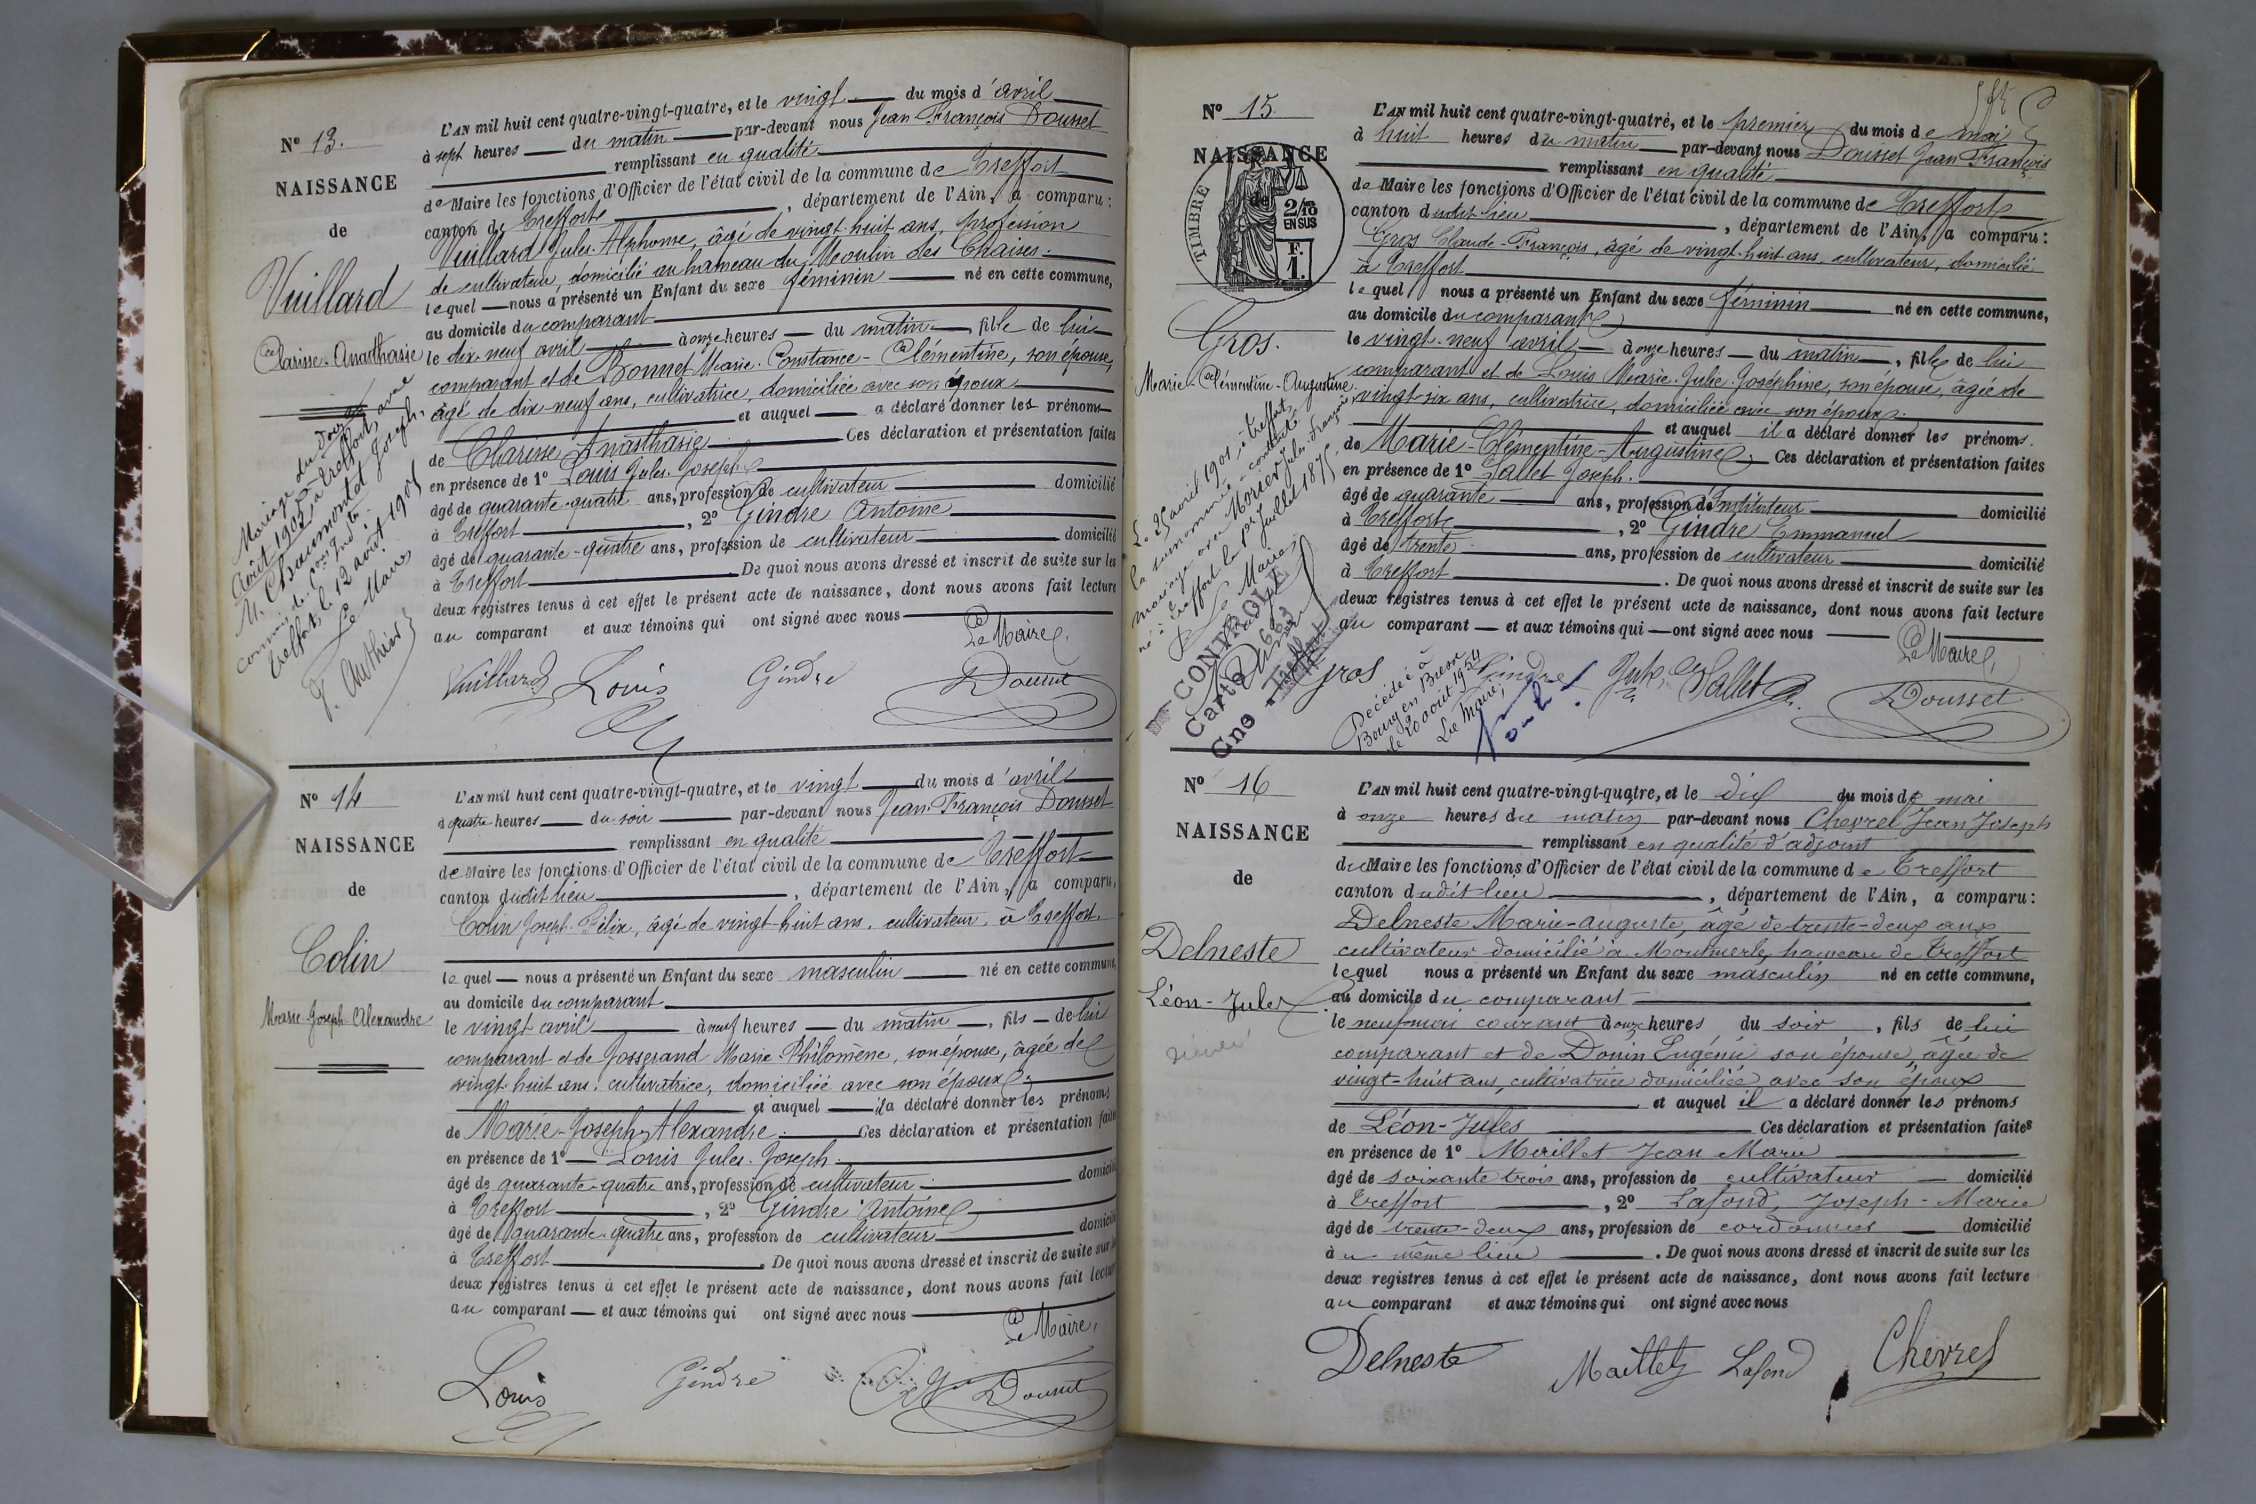 Nº 13.
NAISSANCE
de
Vuillard
Clarisse-Anasthasie
Mariage du douze
Août 1905 à Treffort, avec
M. Chaumontet Joseph,
Treffort, le 12 août 1905
Le Maire
L'AN mil huit cent quatre-vingt-quatre, et le vingt du mois d'avril
à sept heures du matin par-devant nous Jean François Dousset
remplissant en qualité
de Maire les fonctions d'Officier de l'état civil de la commune de Treffort
canton de Treffort, département de l'Ain, a comparu:
Vuillard Jules-Alphonse, âgé de vingt-huit ans, profession
de cultivateur, domicilié au hameau du Moulin des Chaises.
lequel nous a présenté un Enfant du sexe féminin né en cette commune,
au domicile du comparant
le dix-neuf avril à onze heures du matin, fille de lui
comparant et de Bonnet Marie-Constance-Clémentine, son épouse,
âgé de dix-neuf ans, cultivatrice, domiciliée avec son époux
et auquel a déclaré donner les prénoms
de Clarisse Anasthasie Ces déclaration et présentation faites
en présence de 1º Louis Jules-Joseph
âgé de quarante-quatre ans, profession de cultivateur domicilié
à Treffort, 2º Gindre Antoine
âgé de quarante-quatre ans, profession de cultivateur domicilié
à Treffort De quoi nous avons dressé et inscrit de suite sur les
deux registres tenus à cet effet le présent acte de naissance, dont nous avons fait lecture
au comparant et aux témoins qui ont signé avec nous
Le Maire,
Vuillard Louis Gindre Dousset
Nº 14
NAISSANCE
de
Colin
Marie-Joseph-Alexandre
L'AN mil huit cent quatre-vingt-quatre, et le vingt du mois d'avril
à quatre heures du soir par-devant nous Jean-François Dousset
remplissant en qualité
de Maire les fonctions d'Officier de l'état civil de la commune de Treffort
canton dudit lieu, département de l'Ain, a comparu,
Colin Joseph-Félix, âgé de vingt-huit ans, cultivateur, à Treffort.
lequel nous a présenté un Enfant du sexe masculin né en cette commune,
au domicile du comparant
le vingt avril à neuf heures du matin, fils de lui
comparant et de Josserand Marie Philomène, son épouse, âgée de
vingt-huit ans, cultivatrice, domiciliée avec son époux
et auquel il a déclaré donner les prénoms
de Marie-Joseph-Alexandre. Ces déclaration et présentation faites
en présence de 1º Louis Jules-Joseph.
âgé de quarante-quatre ans, profession de cultivateur domicilié
à Treffort, 2º Gindre Antoine
âgé de quarante-quatre ans, profession de cultivateur domicilié
à Treffort. De quoi nous avons dressé et inscrit de suite sur les
deux registres tenus à cet effet le présent acte de naissance, dont nous avons fait lecture
au comparant et aux témoins qui ont signé avec nous
Le Maire,
Louis Gindre Dousset
Nº 15.
NAISSANCE
de
TIMBRE
2/10
EN SUS
F.
1.
Gros.
Marie-Clémentine-Augustine.
Le 25 avril 1901, à Treffort,
la surnommée a contracté
mariage avec Morier Jules-François,
né à Treffort le 1er juillet 1875.
Le Maire
CONTROLE
Carte
Cne Treffort
L'AN mil huit cent quatre-vingt-quatre, et le premier du mois de mai
à huit heures du matin par-devant nous Dousset Jean François
remplissant en qualité
de Maire les fonctions d'Officier de l'état civil de la commune de Treffort
canton dudit lieu, département de l'Ain, a comparu:
Gros Claude-François, âgé de vingt-huit ans, cultivateur, domicilié
à Treffort
lequel nous a présenté un Enfant du sexe féminin né en cette commune,
au domicile du comparant
le vingt-neuf avril à onze heures du matin, fille de lui
comparant et de Louis Marie-Julie-Joséphine, son épouse, âgée de
vingt-six ans, cultivatrice, domiciliée avec son époux.
et auquel il a déclaré donner les prénoms
de Marie-Clémentine-Augustine Ces déclaration et présentation faites
en présence de 1º Sallet Joseph.
âgé de quarante ans, profession d'instituteur domicilié
à Treffort, 2º Gindre Emmanuel
âgé de trente ans, profession de cultivateur domicilié
à Treffort. De quoi nous avons dressé et inscrit de suite sur les
deux registres tenus à cet effet le présent acte de naissance, dont nous avons fait lecture
au comparant et aux témoins qui ont signé avec nous
Le Maire,
Gros Gindre Sallet Dousset
Décédée à
Bourg en Bresse
le 20 août 1954
Le Maire,
Nº 16
NAISSANCE
de
Delneste
Léon-Jules
L'AN mil huit cent quatre-vingt-quatre, et le dix du mois de mai
à onze heures du matin par-devant nous Chevrel Jean Joseph
remplissant en qualité d'adjoint
du Maire les fonctions d'Officier de l'état civil de la commune de Treffort
canton dudit lieu, département de l'Ain, a comparu:
Delneste Marie-Auguste, âgé de trente-deux ans
cultivateur domicilié à Montmerle, hameau de Treffort
lequel nous a présenté un Enfant du sexe masculin né en cette commune,
au domicile du comparant
le neuf mai courant à onze heures du soir, fils de lui
comparant et de Donin Eugénie son épouse, âgée de
vingt-huit ans, cultivatrice domiciliée avec son époux
et auquel il a déclaré donner les prénoms
de Léon-Jules Ces déclaration et présentation faites
en présence de 1º Maillet Jean Marie
âgé de soixante trois ans, profession de cultivateur domicilié
à Treffort, 2º Lafond, Joseph-Marie
âgé de trente-deux ans, profession de cordonnier domicilié
à u même lieu. De quoi nous avons dressé et inscrit de suite sur les
deux registres tenus à cet effet le présent acte de naissance, dont nous avons fait lecture
au comparant et aux témoins qui ont signé avec nous
Delneste Maillet Lafond Chevrel